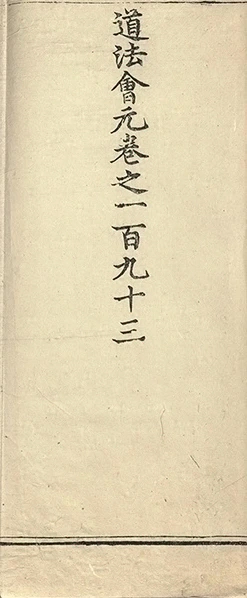 道法會元卷之一百九十三